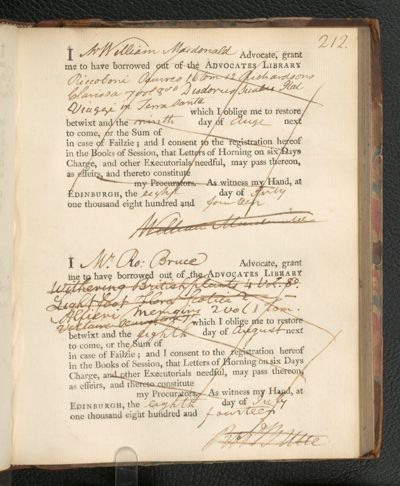 212.
I Mr William Macdonald Advocate, grant
me to have borrowed out of the ADVOCATES LIBRARY
Riccoboni Oeuvres 6 tom 12 Richardsons
Clarissa 7 vol 8vo Diodorus
Viaggi in Terra Santa
which I oblige me to restore
betwixt and the ninth day of Augt next
to come, or the Sum of
in case of Failzie; and I consent to the registration hereof
in the Books of Session, that Letters of Horning on six Days
Charge, and other Executorials needful, may pass thereon,
as effeirs, and thereto constitute
my Procurators. As witness my Hand, at
EDINBURGH, the eight day of July
one thousand eight hundred and fourteen
William
I Mr Ro: Bruce Advocate, grant
me to have borrowed out of the ADVOCATES LIBRARY
Withering British plants 4 vol. 8o
Lightfoot Flora Scotica 2
Allieri Memoirs 2 vol 1 tom.
which I oblige me to restore
betwixt and the eighth day of August next
to come, or the Sum of
in case of Failzie; and I consent to the registration hereof
in the Books of Session, that Letters of Horning on six Days
Charge, and other Executorials needful, may pass thereon,
as effeirs, and thereto constitute
my Procurators. As witness my Hand, at
EDINBURGH, the eighth day of July
one thousand eight hundred and fourteen
Bruce